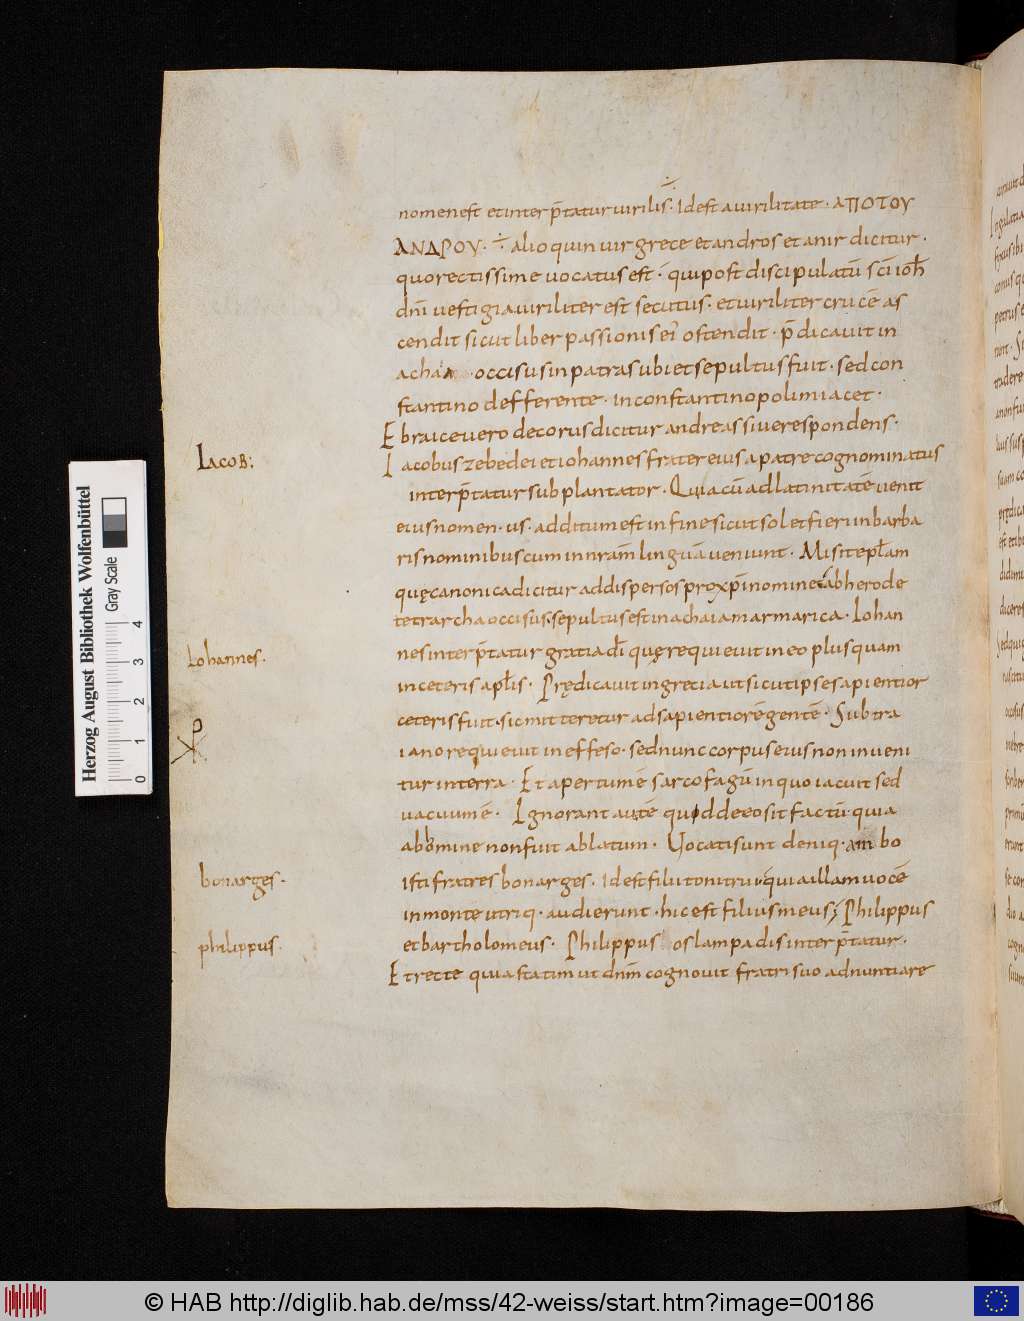 nomen est et interp̄tatur uirilis · id est a uirilitate · ΑΠΟΤΟΥ
ΑΝΔΡΟΥ · ÷ alioquin uir grece et andros et anir dicitur ·
quo rectissime uocatus est · qui post discipulatū sc̄i ioh̄
dn̄i uestigia uiriliter est secutus · et uiriliter crucē as
cendit sicut liber passionis ei᷒ ostendit · p̄dicauit in
achaia · occisus in patras ubi et sepultus fuit · sed con
stantino defferente · in constantinopolim iacet ·
Ebraice uero decorus dicitur andreas siue respondens ·
IACOB:
Iacobus zebedei et iohannes frater eius a patre cognominatus
interp̄tatur subplantator · Quia cū ad latinitatē uenit
eius nomen · us · additum est in fine sicut solet fieri in barba
ris nominibus cum in nr̄am linguā ueniunt · Misit epl̄am
quę canonica dicitur ad dispersos pro xp̄i nomine · ab herode
tetrarcha occisus · sepultus est in achaia marmarica · Iohan
Iohannes ·
nes interp̄tatur gratia dī quę requieuit in eo plus quam
in ceteris apl̄is · Prędicauit in grecia ut sicut ipse sapientior
ceteris fuit · sic mitteretur ad sapientiorē gentē · Sub tra
iano requieuit in effeso · sed nunc corpus eius non inueni
tur in terra · Et apertum ē sarcofagū in quo iacuit sed
uacuum ē · Ignorant autē quid de eo sit factū quia
ab homine non fuit ablatum · Uocati sunt deniq · am bo
bonarges ·
isti fratres bonarges · id est filii tonitrui · quia illam uocē
in monte utriq · audierunt · hic est filius meus ; Philippus
philippus ·
et bartholomeus · Philippus os lampadis interp̄tatur ·
Et recte quia statim ut dnm̄ cognouit fratri suo adnuntiare
Herzog August Bibliothek Wolfenbüttel
Gray Scale
0 1 2 3 4
© HAB http://diglib.hab.de/mss/42-weiss/start.htm?image=00186